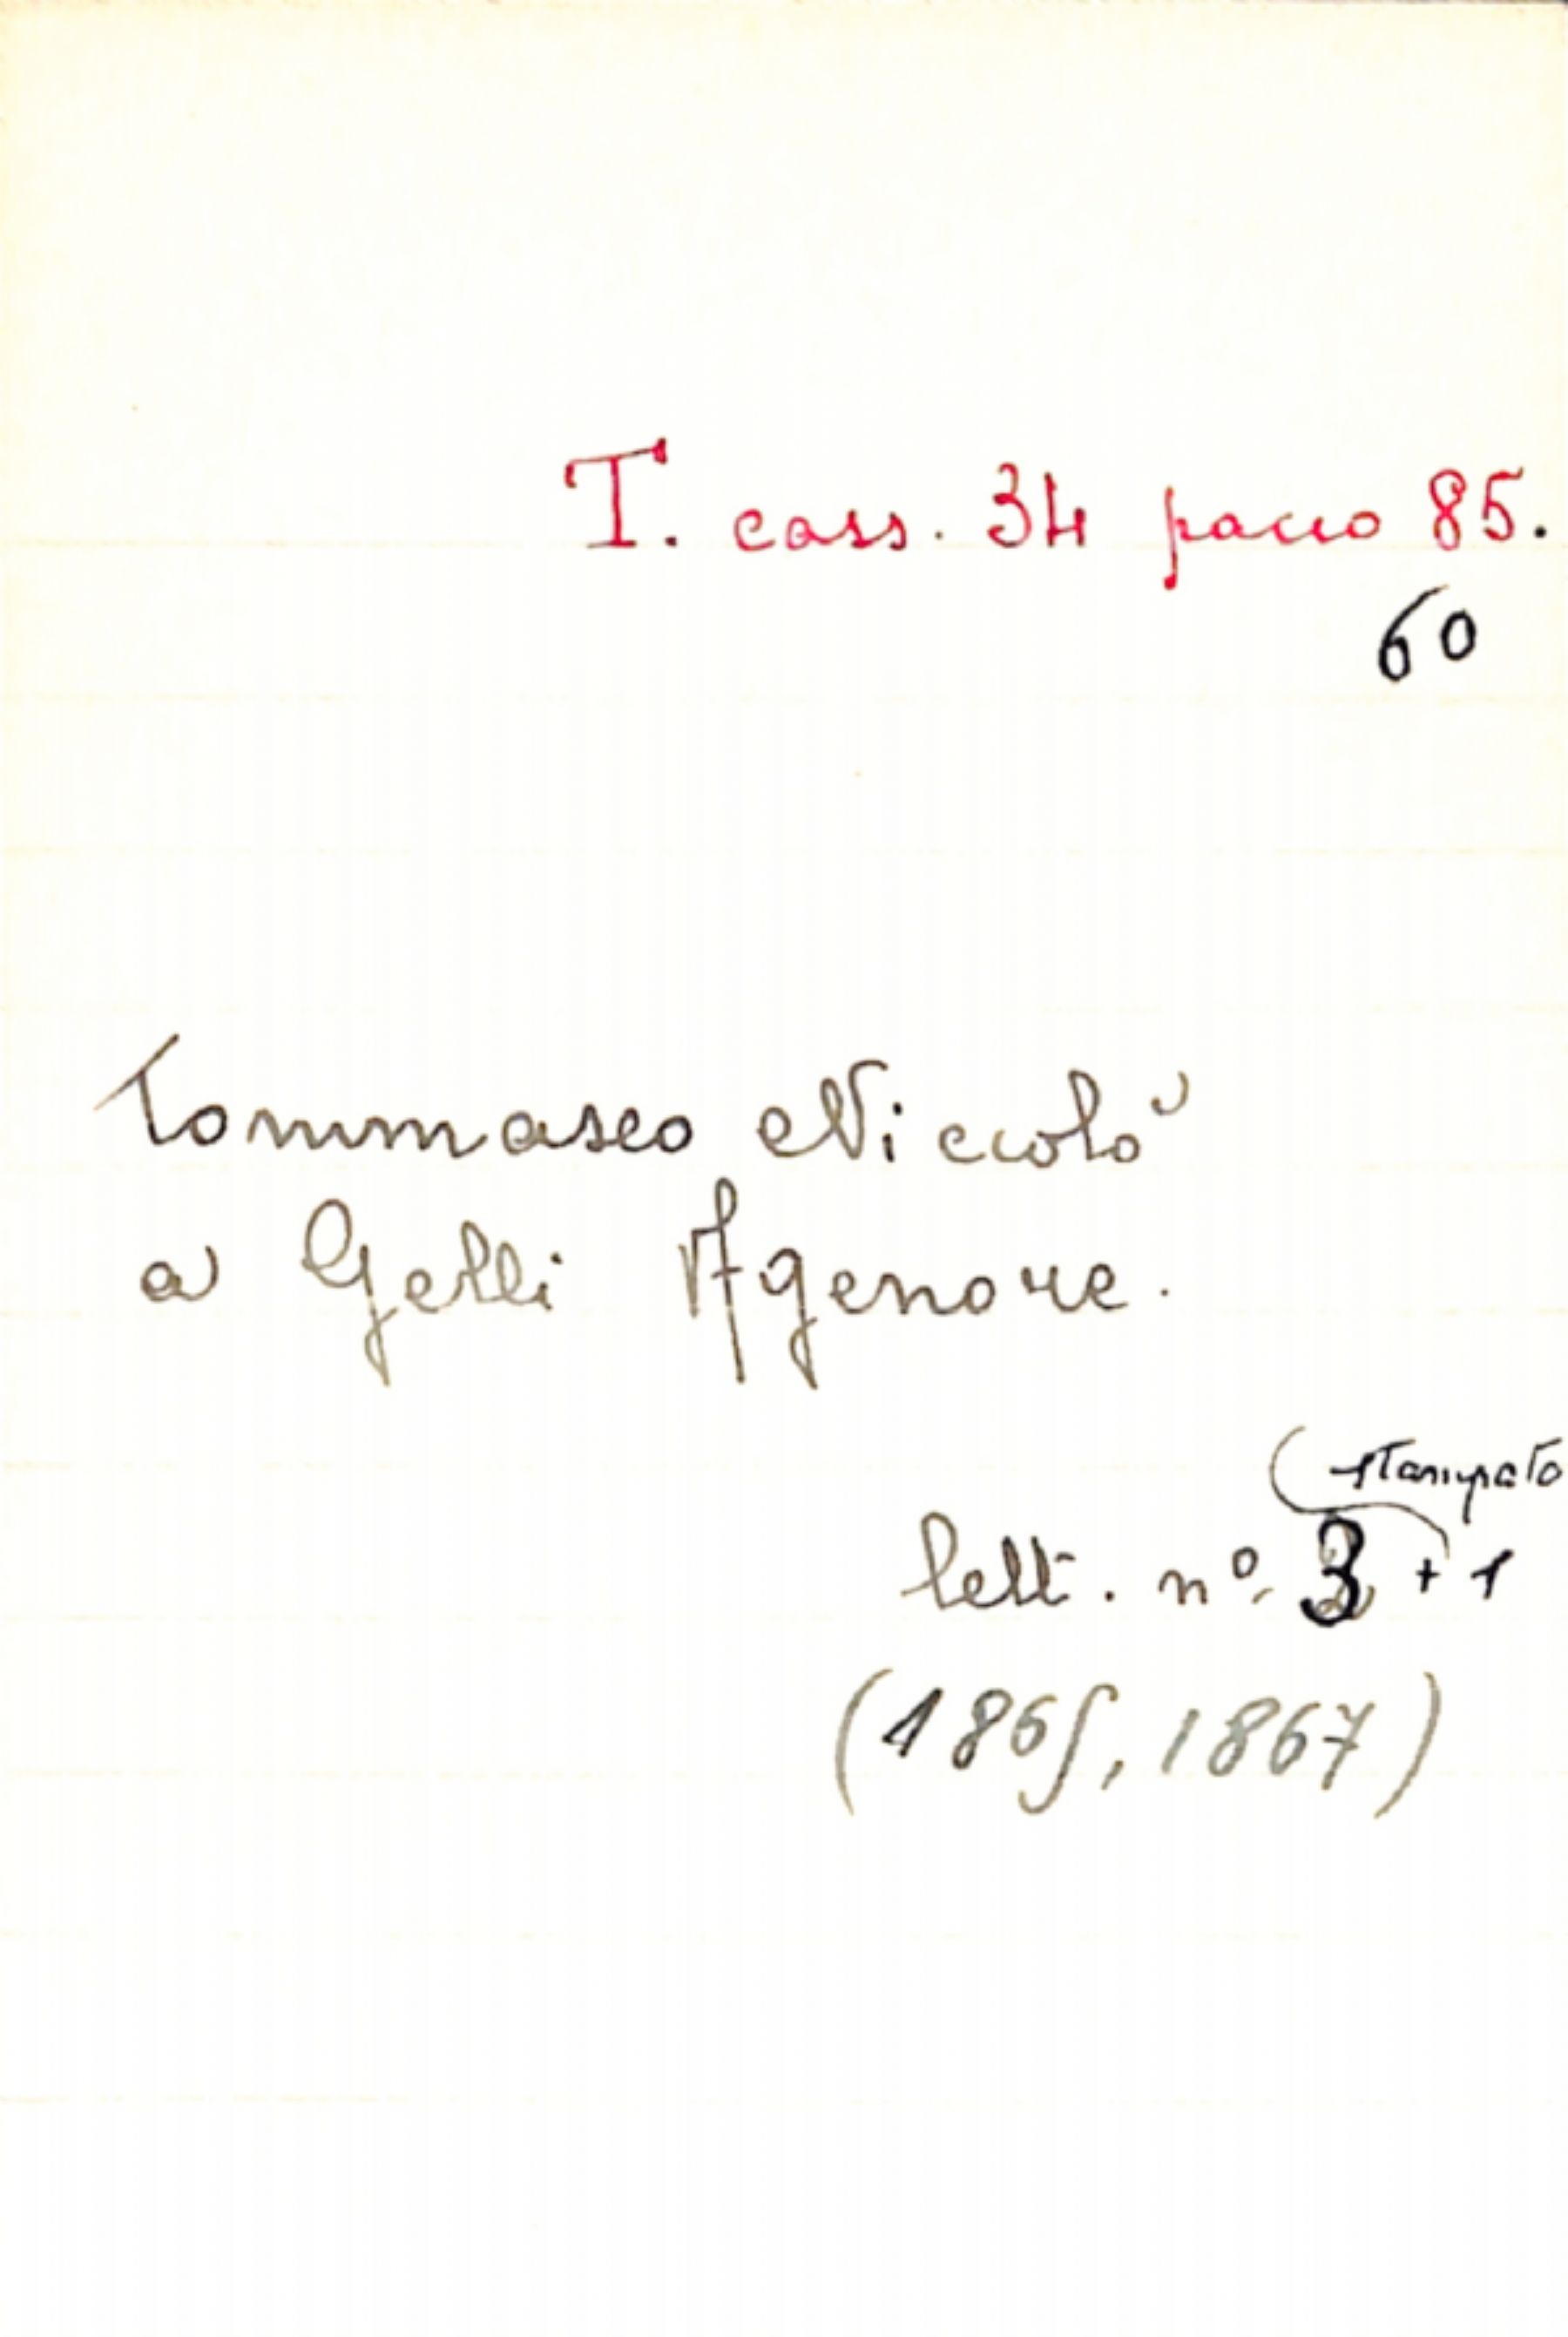 T. cass. 34 pacco 85.
60
Tommaseo Niccolò
a Gelli Agenore.
stampato
lett. nº. 3 + 1
(1865, 1867)